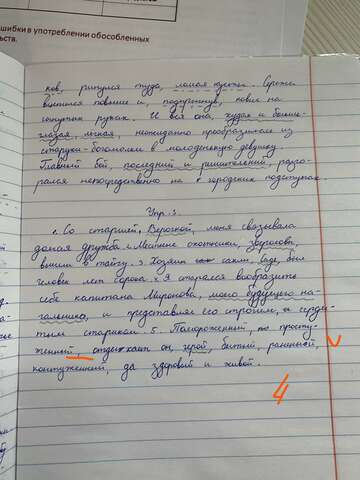 шибки в употреблении обособленных
ьств.
ков, ринулся туда, ломая кусты. Сережа
вытянулся повыше и, подпрыгнув, повис на
руках. И вся она, худая и больше-
глазая, легкая, неожиданно преобразилась из
старухи-богомолки в молоденькую девушку.
Главный бой, последний и решительный, разго-
рался непосредственно на городских подступах.
Упр. 3.
1. Со старшей, Верочкой, меня связывала
давняя дружба. 2. Местные охотники, зверолови,
вышли в тайгу. 3. Хозяин сакли, был
человек лет сорока. 4. Я старался вообразить
себе капитана Миронова, моего будущего на-
чальника, и представлял его строгим, сердитым стариком. 5. Помороженный, просту-
женный, отдыхает он, герой, битый, раненый,
контуженный, да здоровый и живой.
4